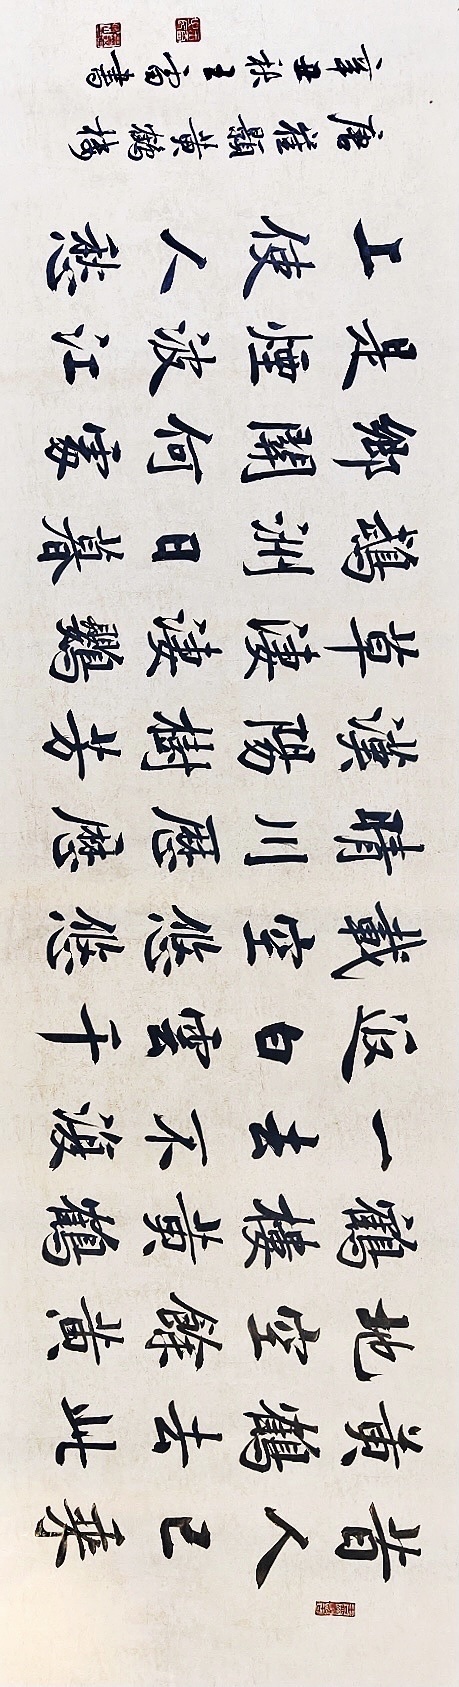 昔人已乘
黄鶴去此
地空餘黄
鶴樓黄鶴
一去不復
返白雲千
載空悠悠
晴川歷歷
漢陽樹芳
草淒淒鸚
鵡洲日暮
鄉關何處
是煙波江
上使人愁
唐崔顥黄鶴樓
辛丑秋王書